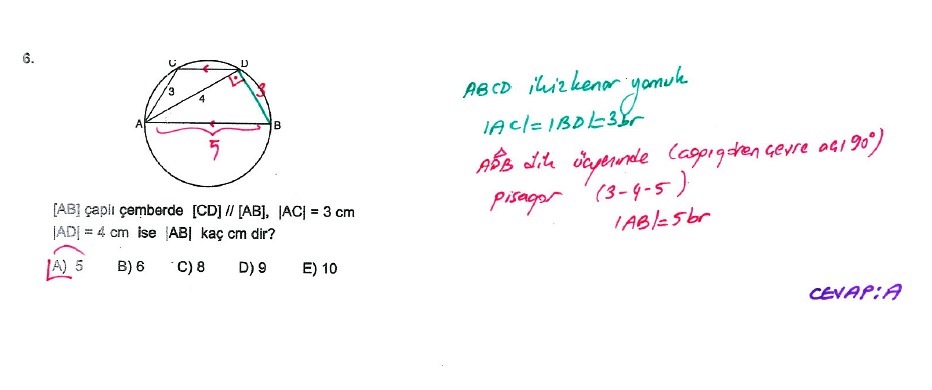 6.
C D
3 4 3
A B
5
[AB] çaplı çemberde [CD] // [AB], |AC| = 3 cm
|AD| = 4 cm ise |AB| kaç cm dir?
A) 5 B) 6 C) 8 D) 9 E) 10
ABCD ikizkenar yamuk
|AC|=|BD|=3br
ADB dik üçgeninde (çapı gören çevre açı 90°)
pisagor (3-4-5)
|AB|=5br
CEVAP:A